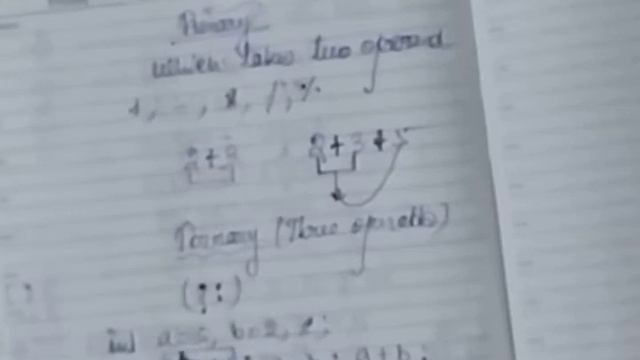 Binary
which takes two operand
+, -, *, /, %
2 + 3 + 5
Ternary (Three operands)
(?:)
int a=5, b=2,